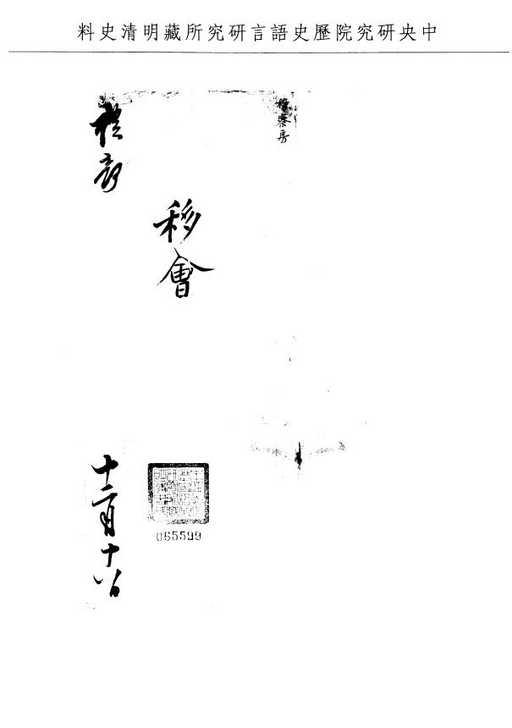 中央研究院歷史語言研究所藏明清史料
稽察房
移會
禮部
十二月十八日
065599